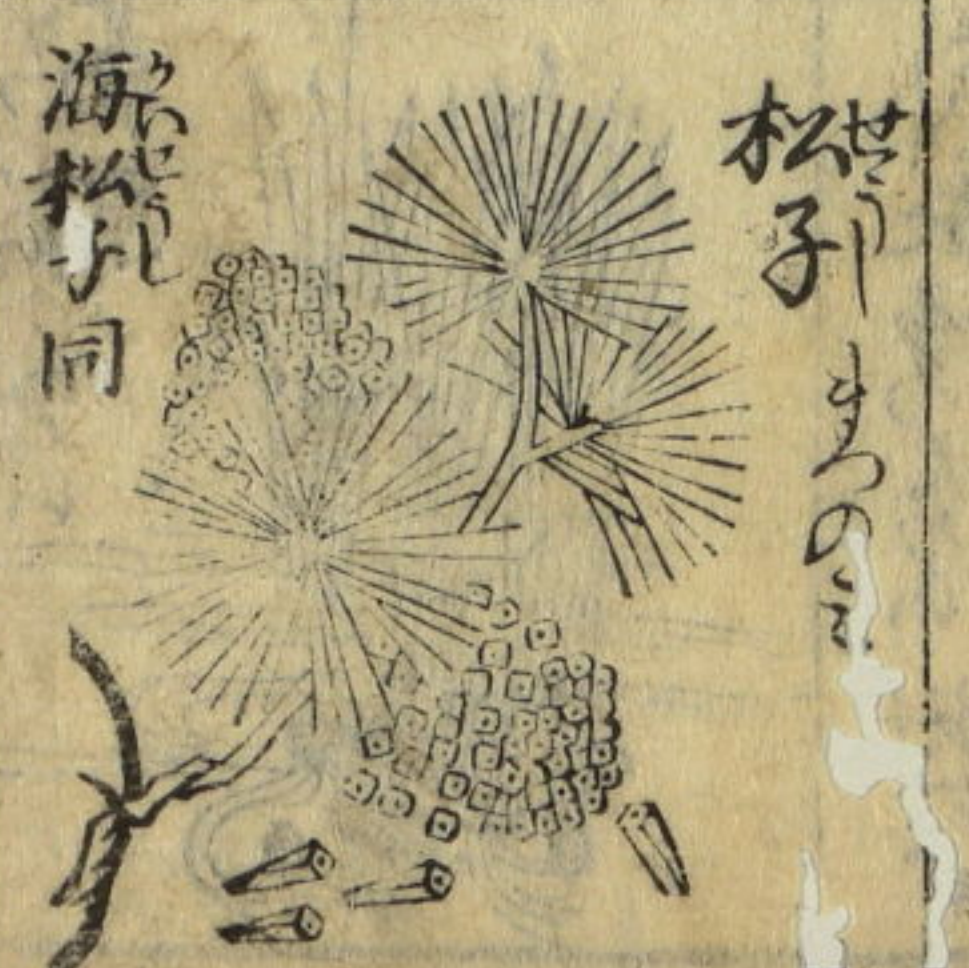 松子 せうし まつのミ
海松子 かいせうし 同